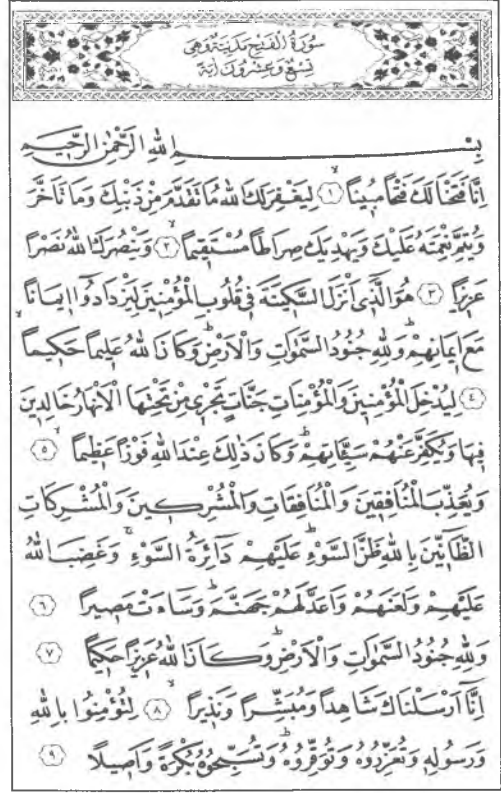 سُورَةُ الْفَتْحِ مَدَنِيَّةٌ وَهِيَ
تِسْعٌ وَعِشْرُونَ اٰيَةً
بِسْمِ اللهِ الرَّحْمٰنِ الرَّحٖيمِ
اِنَّا فَتَحْنَا لَكَ فَتْحاً مُبٖيناًۙ ﴿١﴾ لِيَغْفِرَ لَكَ اللهُ مَا تَقَدَّمَ مِنْ ذَنْبِكَ وَمَا تَاَخَّرَ
وَيُتِمَّ نِعْمَتَهُ عَلَيْكَ وَيَهْدِيَكَ صِرَاطاً مُسْتَقٖيماًۙ ﴿٢﴾ وَيَنْصُرَكَ اللهُ نَصْراً
عَزٖيزاً ﴿٣﴾ هُوَ الَّذٖٓي اَنْزَلَ السَّكٖينَةَ فٖي قُلُوبِ الْمُؤْمِنٖينَ لِيَزْدَادُٓوا اٖيمَاناً
مَعَ اٖيمَانِهِمْؕ وَلِلّٰهِ جُنُودُ السَّمٰوَاتِ وَالْاَرْضِؕ وَكَانَ اللهُ عَلٖيماً حَكٖيماًۙ
﴿٤﴾ لِيُدْخِلَ الْمُؤْمِنٖينَ وَالْمُؤْمِنَاتِ جَنَّاتٍ تَجْرٖي مِنْ تَحْتِهَا الْاَنْهَارُ خَالِدٖينَ
فٖيهَا وَيُكَفِّرَ عَنْهُمْ سَيِّـَٔاتِهِمْؕ وَكَانَ ذٰلِكَ عِنْدَ اللهِ فَوْزاً عَظٖيماًۙ ﴿٥﴾
وَيُعَذِّبَ الْمُنَافِقٖينَ وَالْمُنَافِقَاتِ وَالْمُشْرِكٖينَ وَالْمُشْرِكَاتِ
الظَّٓانّٖينَ بِاللهِ ظَنَّ السَّوْءِؕ عَلَيْهِمْ دَٓائِرَةُ السَّوْءِۚ وَغَضِبَ اللهُ
عَلَيْهِمْ وَلَعَنَهُمْ وَاَعَدَّ لَهُمْ جَهَنَّمَؕ وَسَٓاءَتْ مَصٖيراً ﴿٦﴾
وَلِلّٰهِ جُنُودُ السَّمٰوَاتِ وَالْاَرْضِؕ وَكَانَ اللهُ عَزٖيزاً حَكٖيماً ﴿٧﴾
اِنَّٓا اَرْسَلْنَاكَ شَاهِداً وَمُبَشِّراً وَنَذٖيراًۙ ﴿٨﴾ لِتُؤْمِنُوا بِاللهِ
وَرَسُولِهٖ وَتُعَزِّرُوهُ وَتُوَقِّرُوهُؕ وَتُسَبِّحُوهُ بُكْرَةً وَاَصٖيلاً ﴿٩﴾